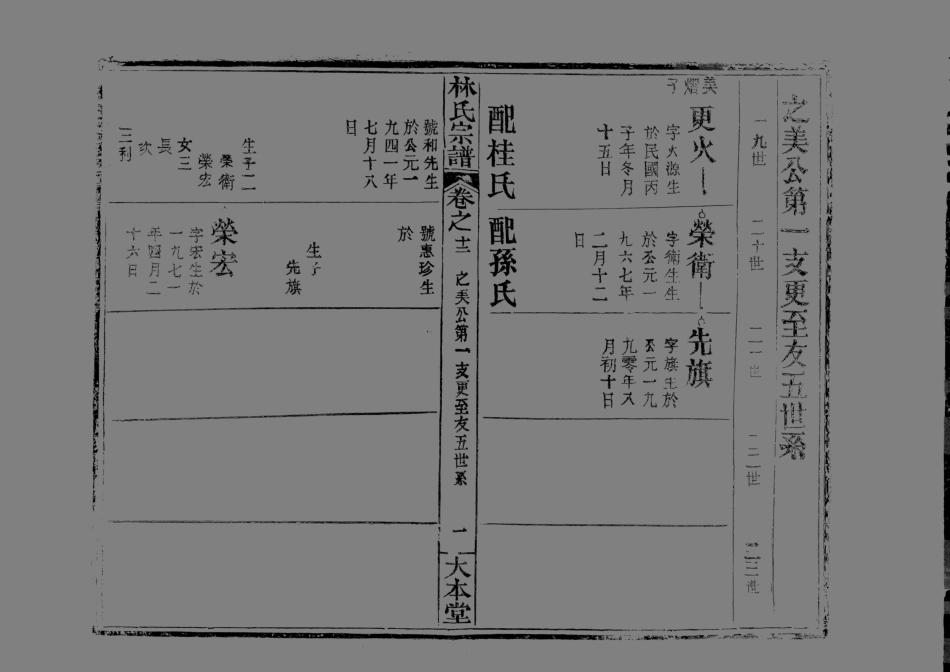 之美公第一支更至友五世系
一九世
二十世
二一世
二二世
二三世
美熠子
更火
字火源生
於民國丙
子年冬月
十五日
配桂氏
榮衛
字衛生生
於公元一
九六七年
二月十二
日
配孫氏
先旗
字旗生於
公元一九
九零年又
月初十日
林氏宗譜
卷之十三
之美公第一支更至友五世系
一
大本堂
號和先生
於公元一
九四一年
七月十八
日
生子二
榮衛
榮宏
女三
長
次
三利
號惠珍生
於
生子
先旗
榮宏
字宏生於
一九七一
年四月二
十六日